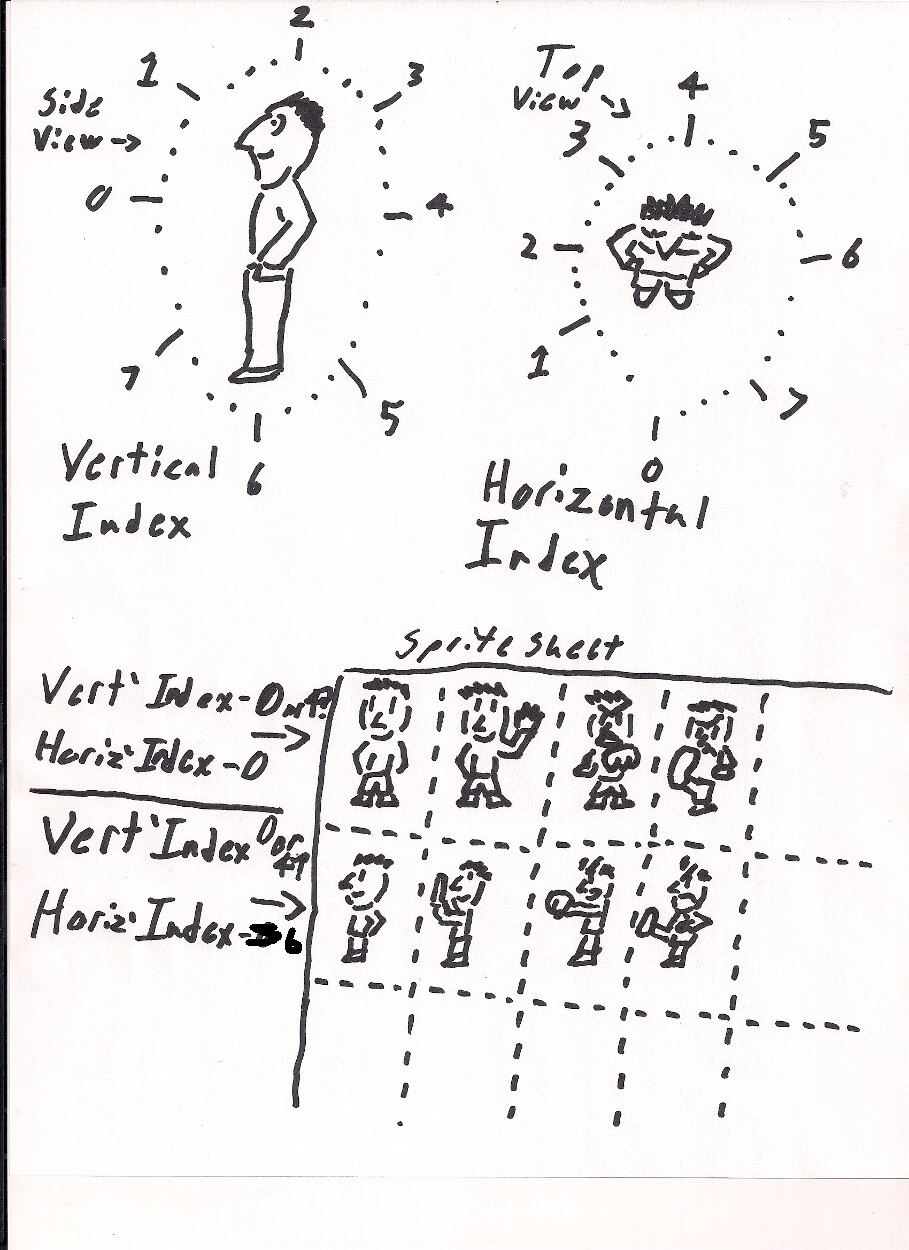 2
1
3
Side
View →
0
4
7
5
6
Vertical
Index
Top
View
4
3
5
2
6
1
7
0
Horizontal
Index
Sprite Sheet
Vert' Index - 0 or 4?
Horiz' Index - 0
Vert' Index 0 or
4?
Horiz' Index - 6